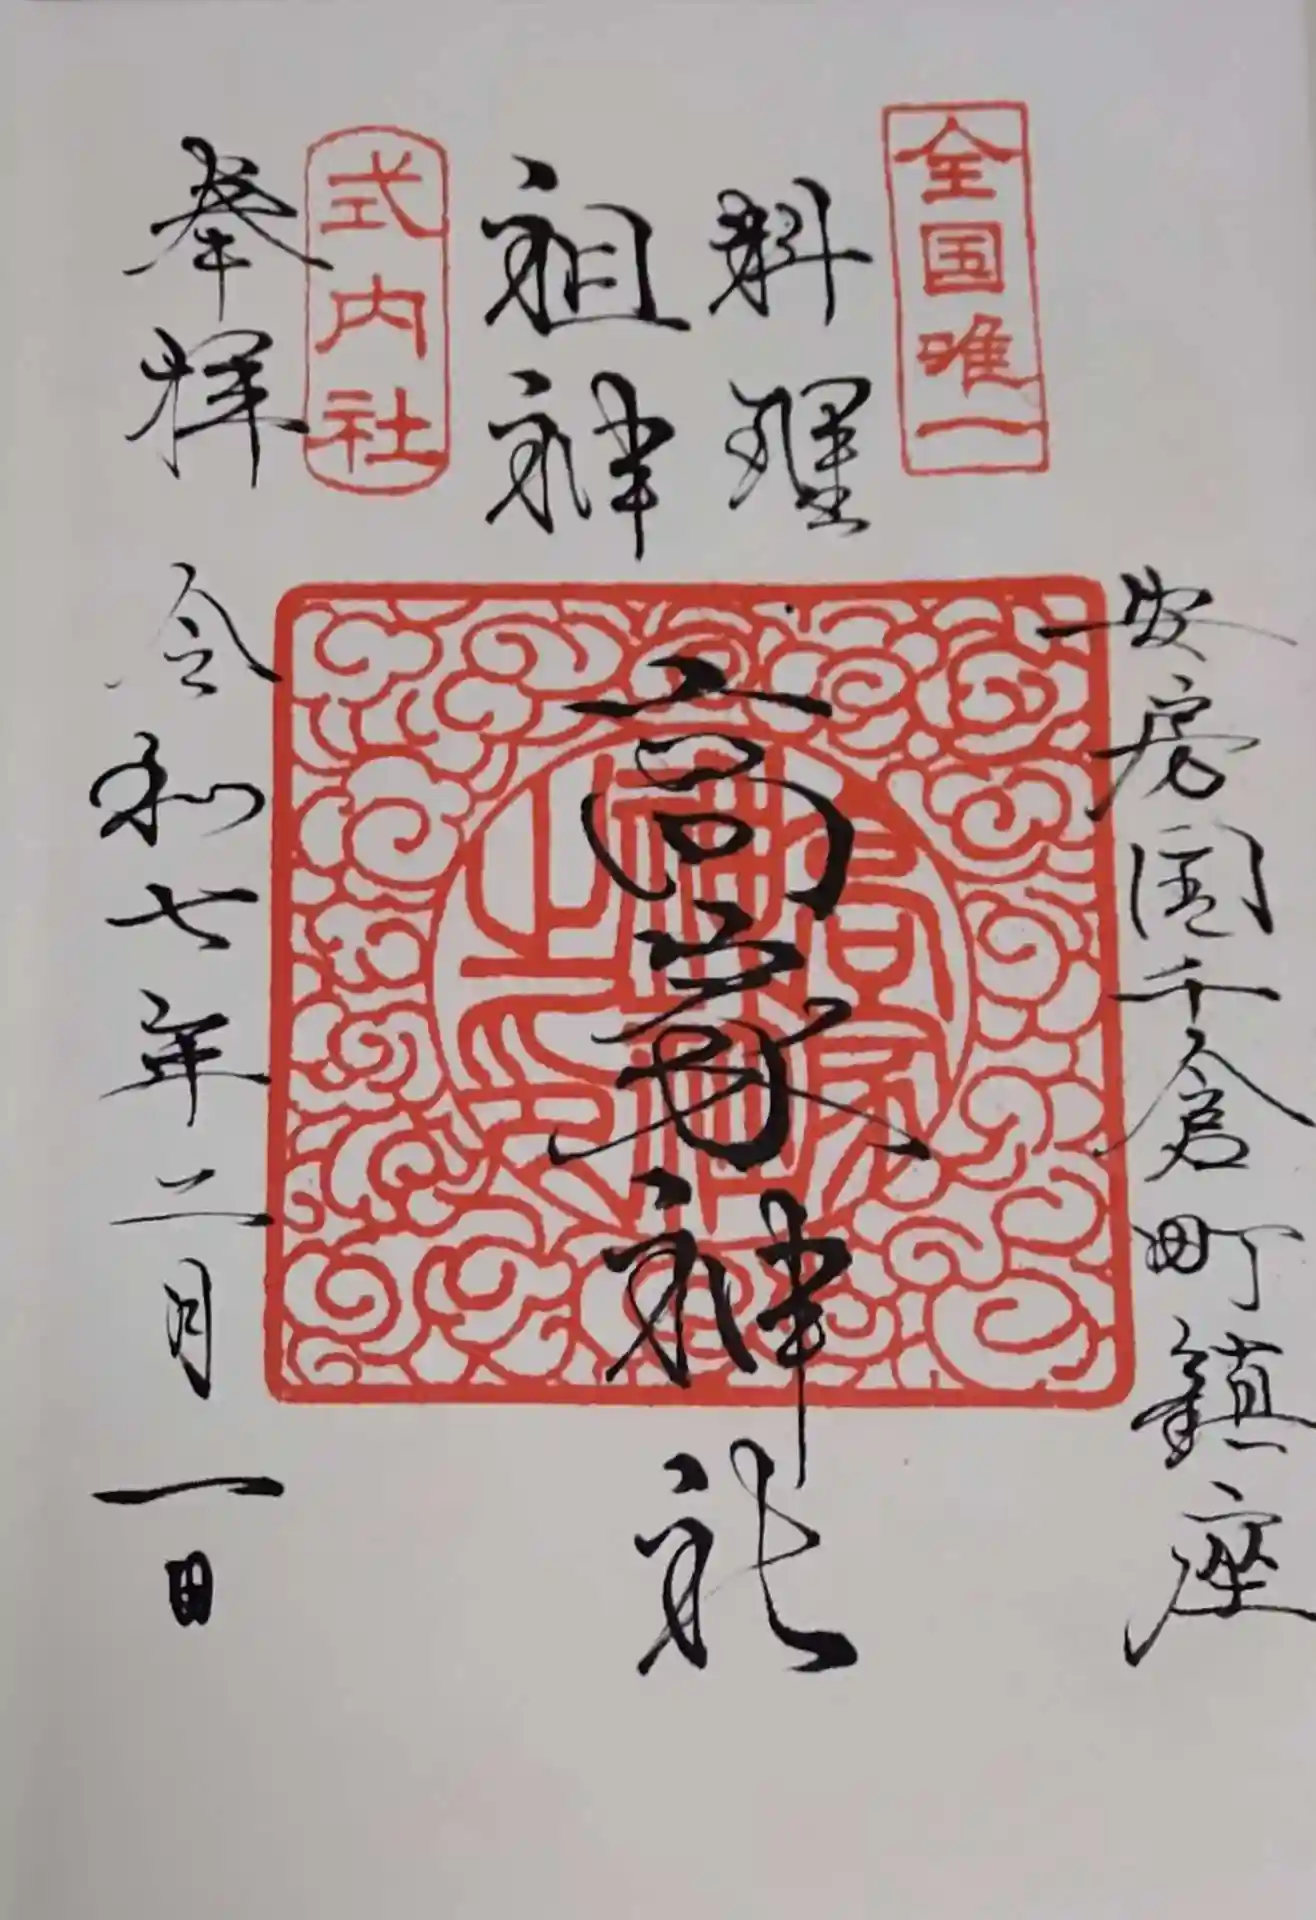 全国唯一
料理
祖神
式内社
奉拝
安房国千倉町鎮座
高家神社
令和七年二月一日